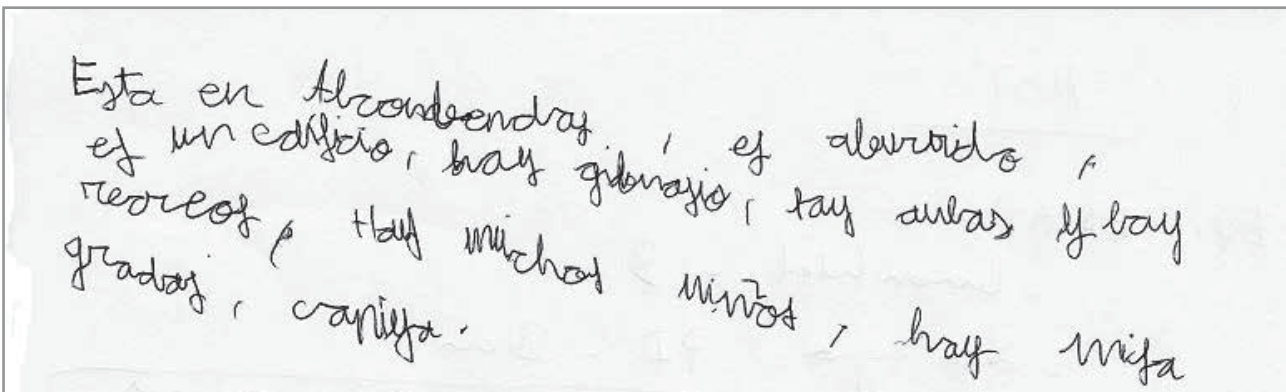 Esta en Alcondendas, es aburrido,
es un edificio, hay gibnasio, hay aulas y hay
recreos, Hay muchos niños, hay misa
gradas, capiya.